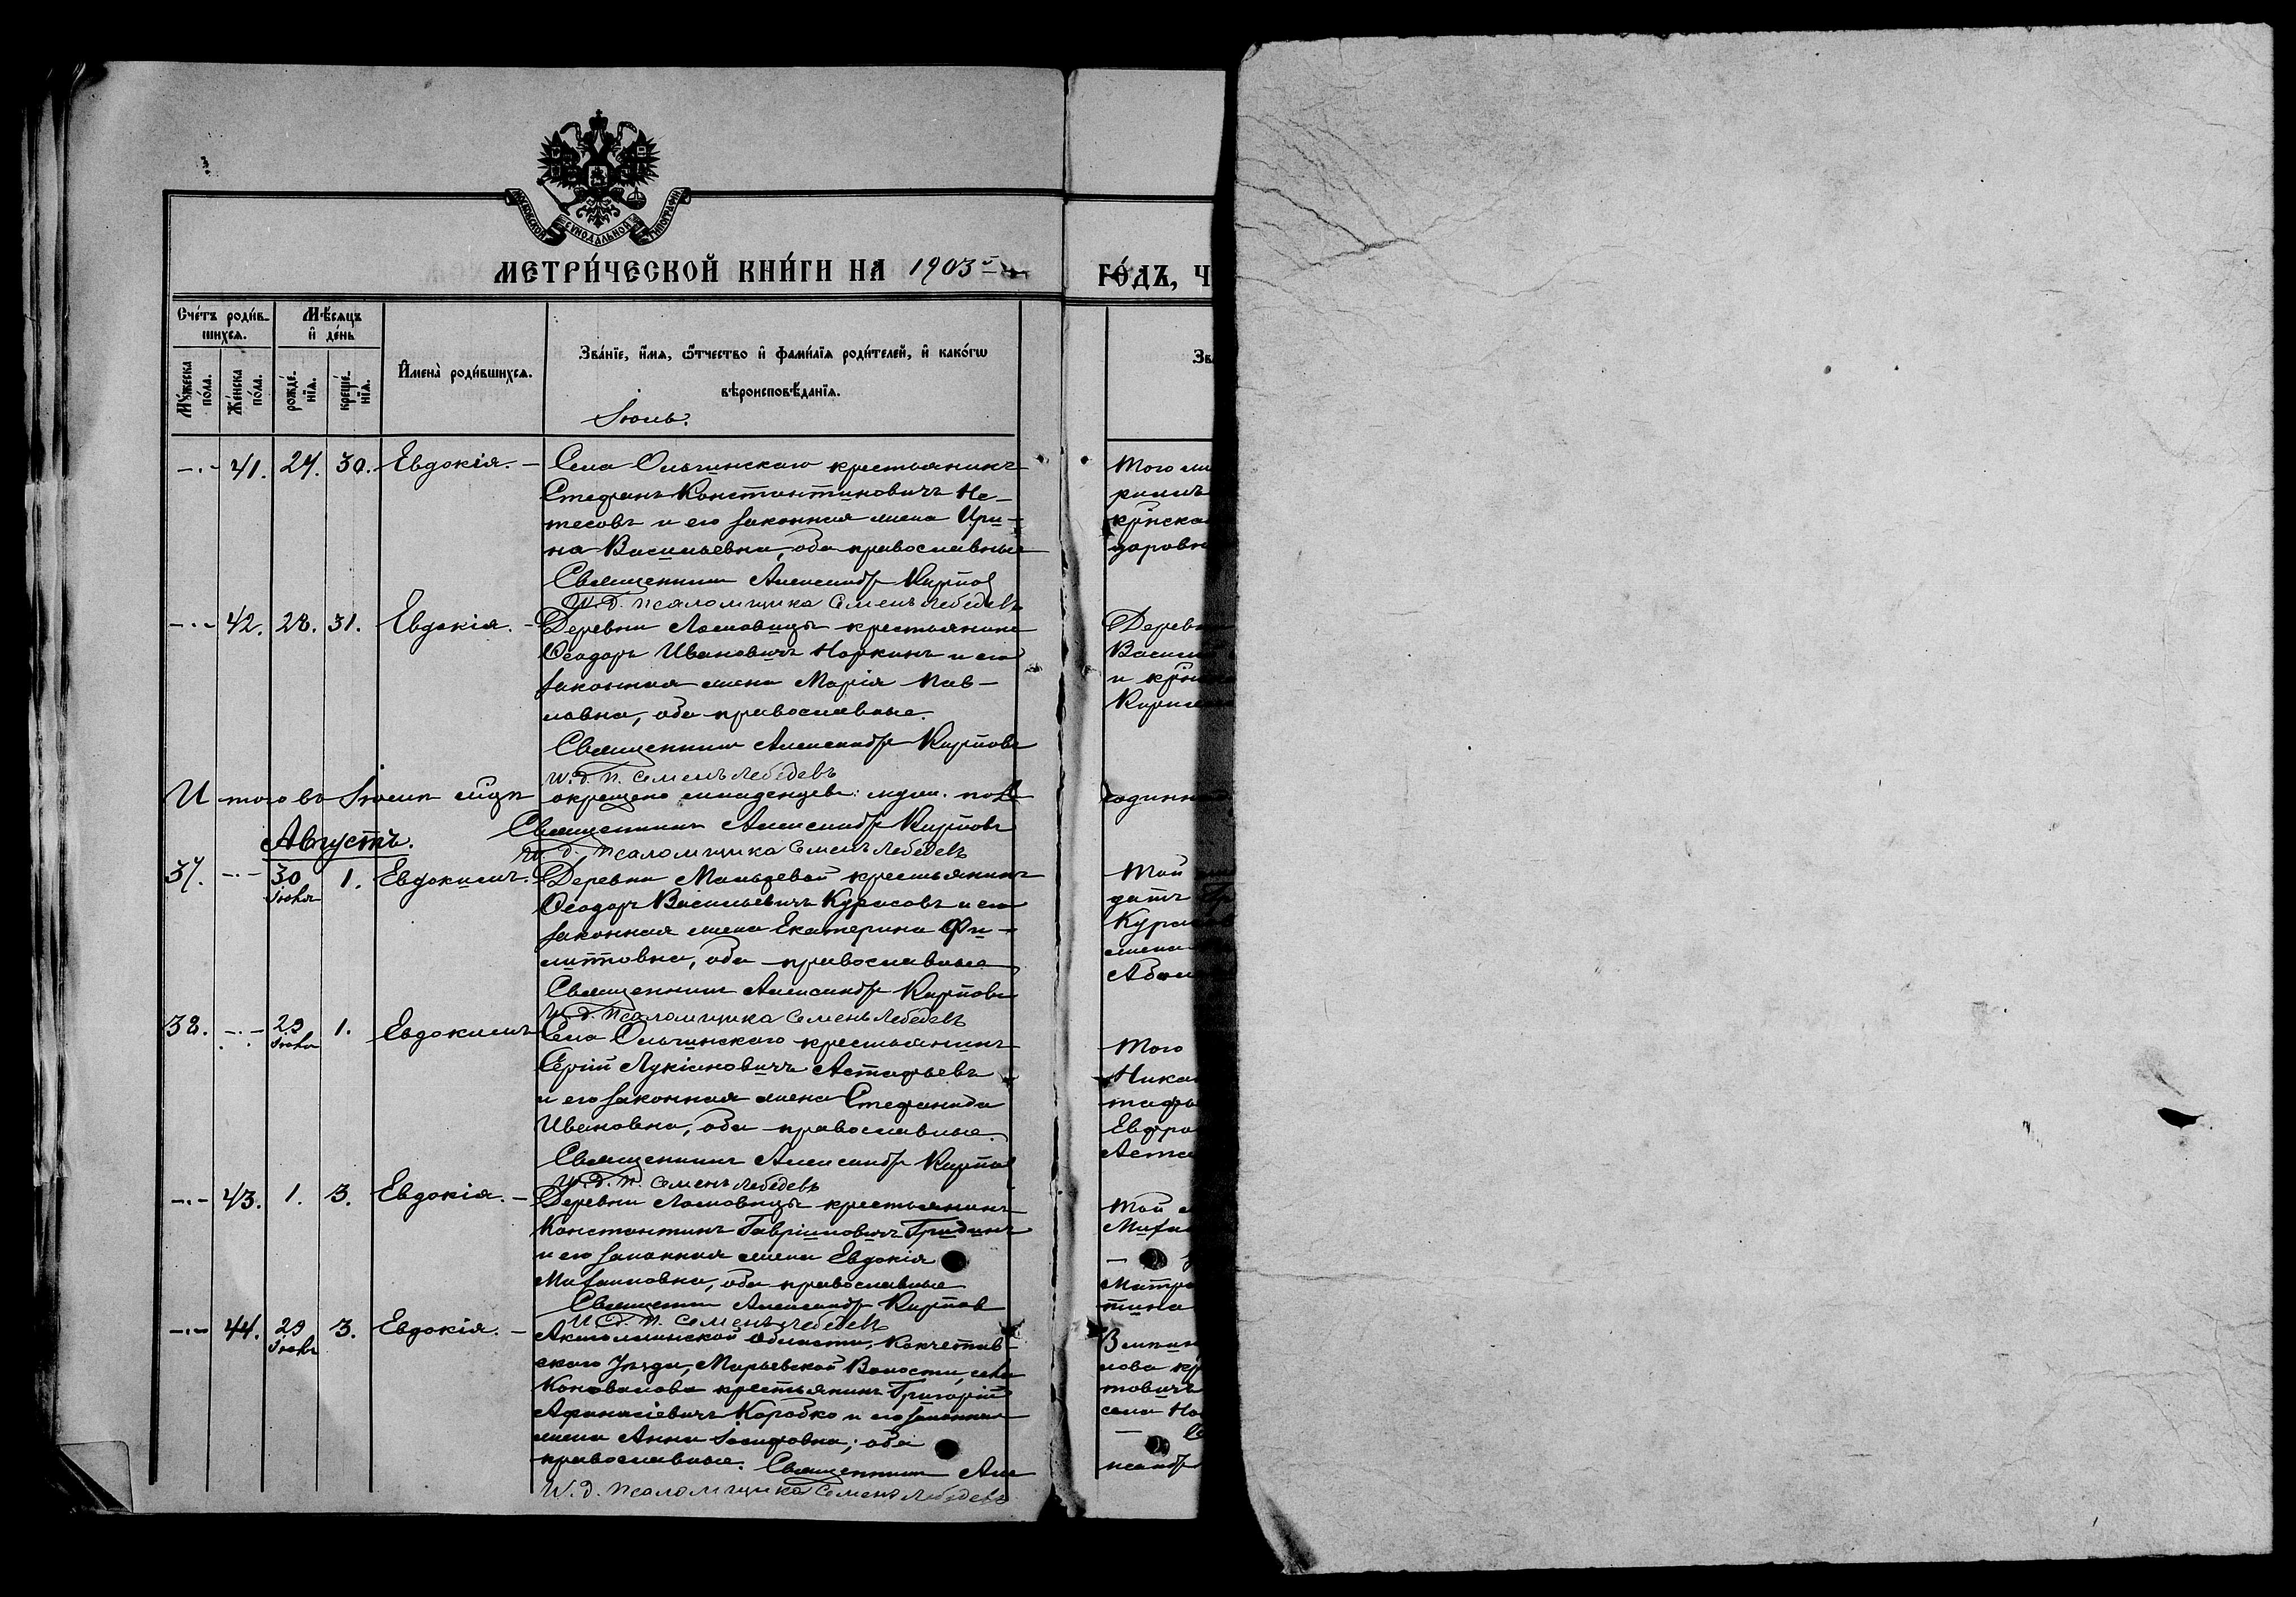 МОСКОВСКОЙ СѴНОДАЛЬНОЙ ТИПОГРАФІИ
МЕТРИ́ЧЕСКОЙ КНИ́ГИ НА 1903й
ГО́ДЪ, Ч
Сче́тъ роди́в-
шихся.
Мѣ́сяцъ
и҆ де́нь
Му́жеска
по́ла.
Же́нска
по́ла.
рожде́-
нїя.
креще́-
нїя.
И҆мена̀ роди́вшихся.
Зва́нїе, и҆́мя, ѻ҆́тчество и҆ фами́лїя роди́телей, и҆ како́гѡ
вѣроисповѣ́данїя.
Зва
Іюль.
-.- 41. 27. 30. Евдокія. – Села Ольгинскаго крестьянинъ
Стефанъ Константиновичъ Не-
тесовъ и его законная жена Ири-
на Васильевна, оба православные
Священникъ Александръ Куртов
И. д. псаломщика Семенъ Лебедевъ
-.- 42. 28. 31. Евдокія. – Деревни Ломовицы крестьянинъ
Ѳеодоръ Ивановичъ Норкинъ и его
законная жена Марія Пав-
ловна, оба православные.
Священникъ Александръ Куртовъ
И. д. п. Семенъ Лебедевъ
Итого въ Іюлѣ мѣсяцѣ окрещено младенцевъ: муж. пола
Священникъ Александръ Куртовъ
Августъ.
И. д. псаломщика Семенъ Лебедевъ
37. -.- 30 Іюля 1. Евдокимъ. Деревни Мальцевой крестьянинъ
Ѳеодоръ Васильевичъ Курасовъ и его
законная жена Екатерина Фи-
липповна, оба православные
Священникъ Александръ Куртовъ
И. д. псаломщика Семенъ Лебедевъ
38. -.- 29 Іюля 1. Евдокимъ Села Ольгинскаго крестьянинъ
Сергій Лукіановичъ Астафьевъ
и его законная жена Стефанида
Ивановна, оба православные.
Священникъ Александръ Куртов
И. д. п. Семенъ Лебедевъ
-.- 43. 1. 3. Евдокія. – Деревни Ломовицы крестьянинъ
Константинъ Гавріиловичъ Гридинъ
и его законная жена Евдокія
Михаиловна, оба православные
Священникъ Александръ Куртов
И. д. п. Семенъ Лебедевъ
-.- 44. 29 Іюля 3. Евдокія. – Акмолинской области, Кокчетав-
скаго Уѣзда, Марьевской Волости, села
Коновалова крестьянинъ Григорій
Афанасіевичъ Коробко и его законная
жена Анна Іосифовна; оба
православные. Священникъ Але
И. д. псаломщика Семенъ Лебедевъ
Того
крѣска
Деревн
Васил
и
Кирил
Той
датъ
Кура
жена
Того
Ника
тафь
Евфро
Аста
Той
Миха
Митро
тина
лова кр
товичъ
села Но